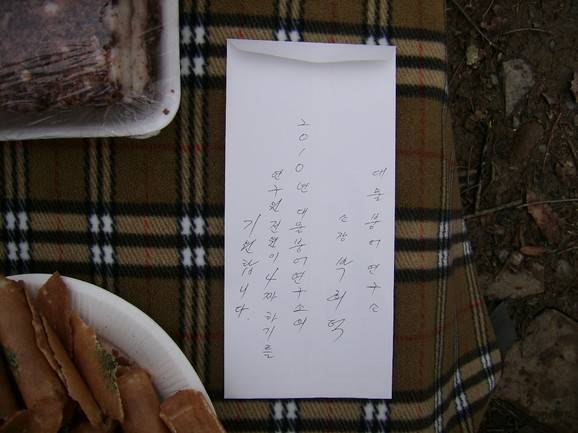 대물 붕어 연구소
소장 박 희 덕
2010년 대물붕어연구소의
연구원 전원이 4짜하기를
기원합니다.